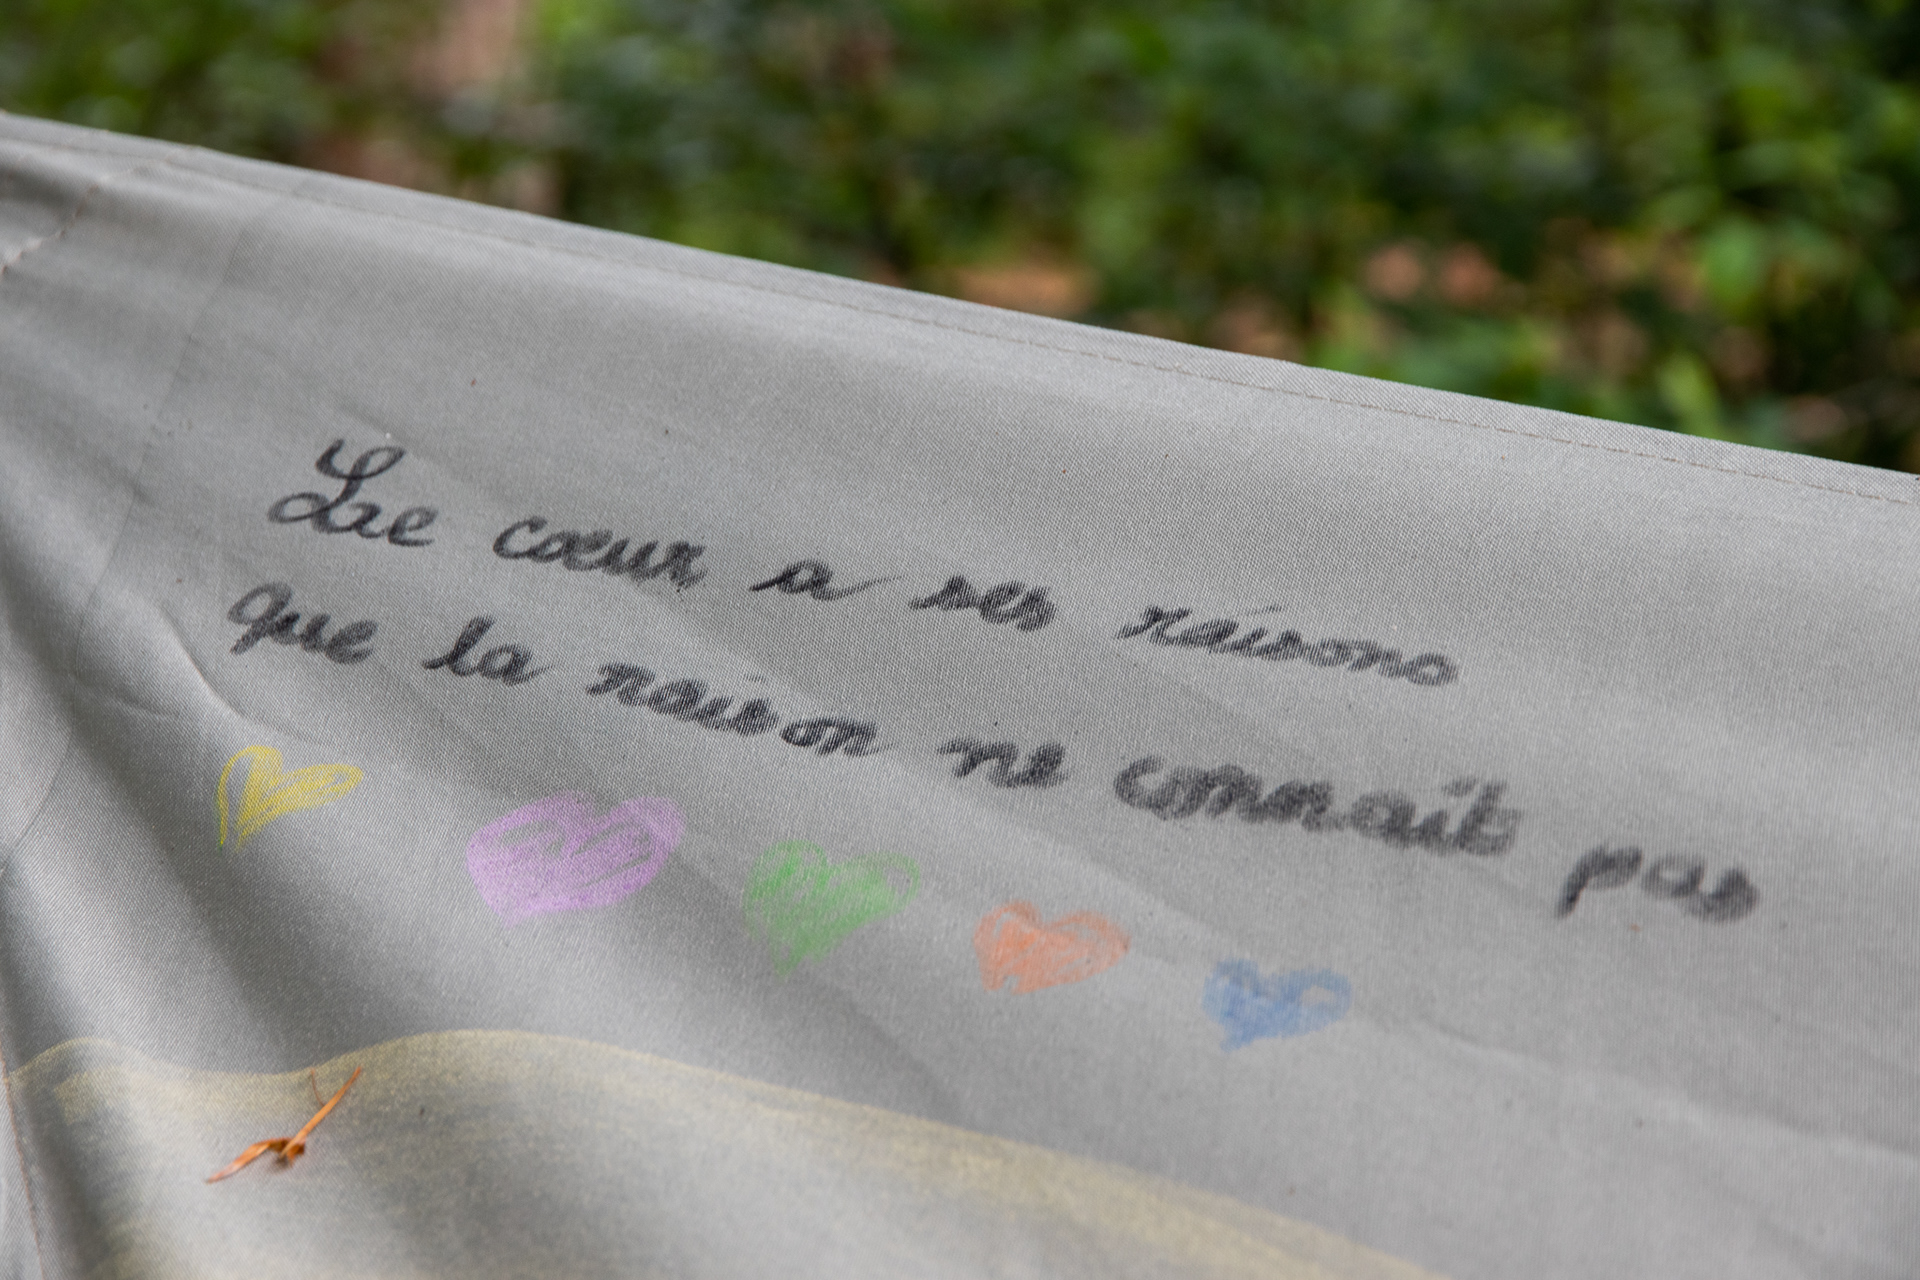 Le cœur a ses raisons
que la raison ne connaît pas